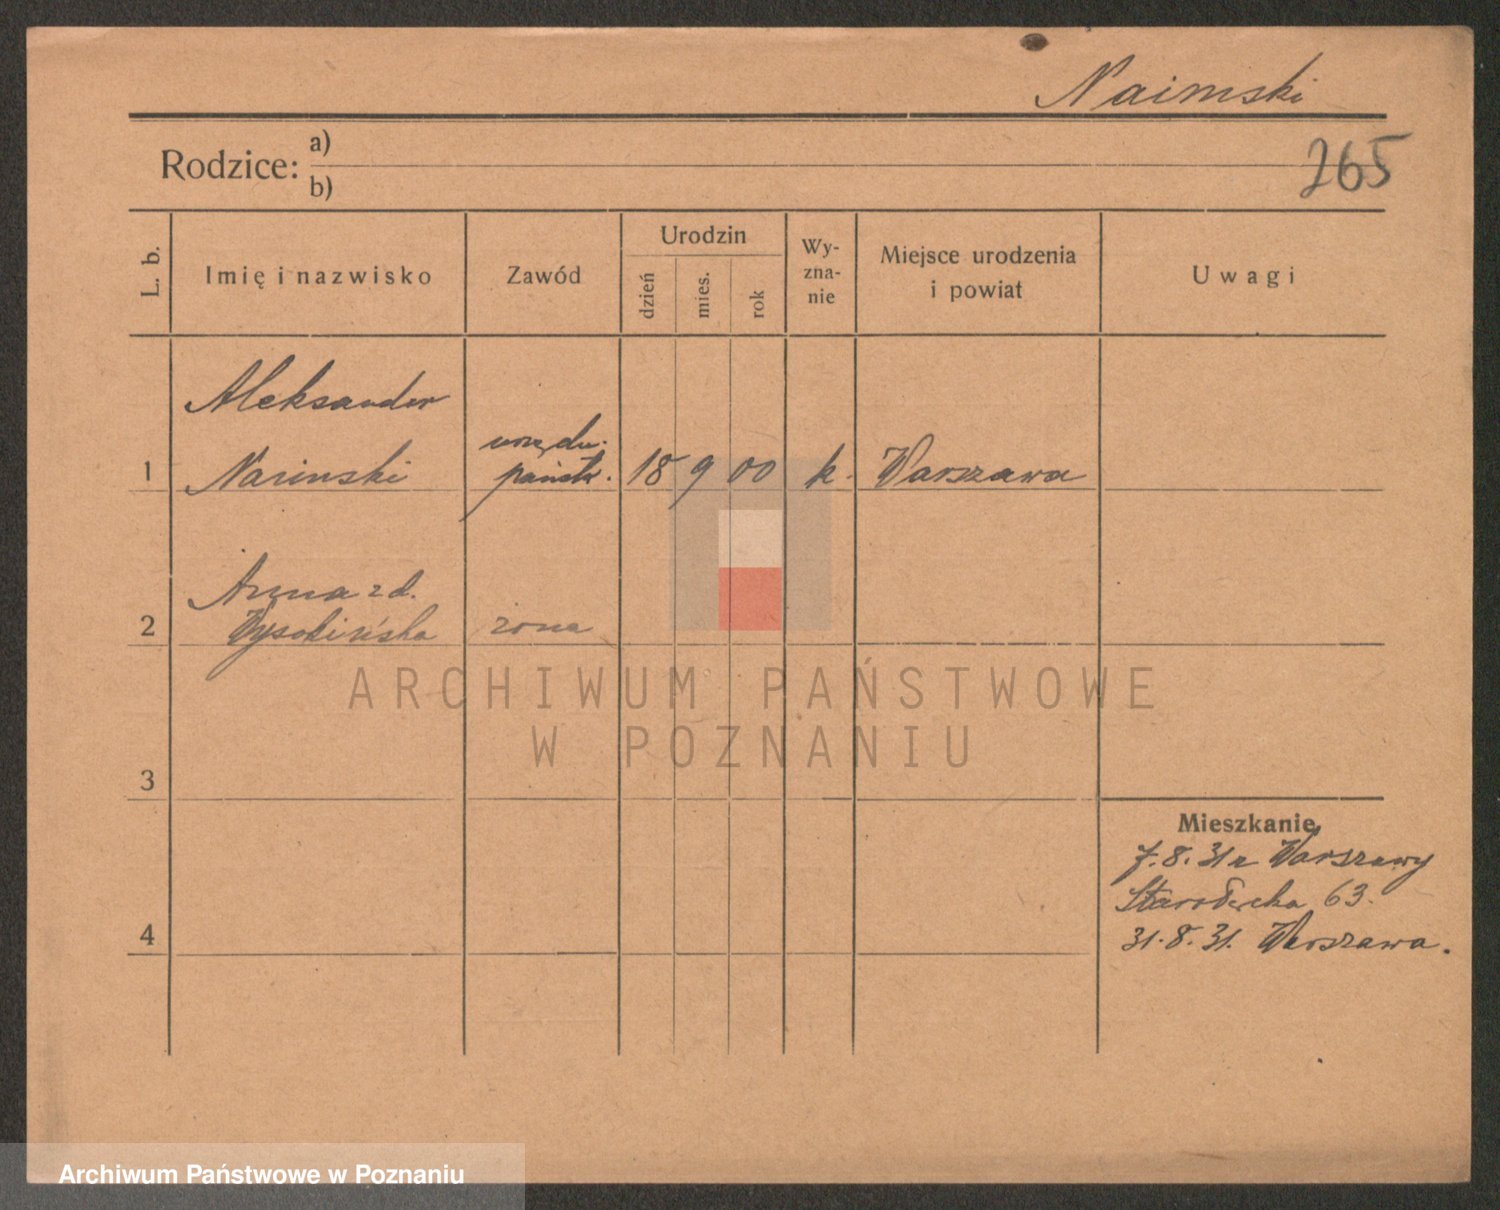 Naimski
265
Rodzice: a)
b)
L. b.
Imię i nazwisko
Zawód
Urodzin
dzień
mies.
rok
Wy-
zna-
nie
Miejsce urodzenia
i powiat
Uwagi
Aleksander
urzędn.
1 Naimski państw. 18 9 00 k. Warszawa
Anna z d.
2 Wysokińska żona
ARCHIWUM PAŃSTWOWE
W POZNANIU
3
Mieszkanie
7.8.31 z Warszawy
Starołęcka 63.
4 31.8.31. Warszawa.
Archiwum Państwowe w Poznaniu